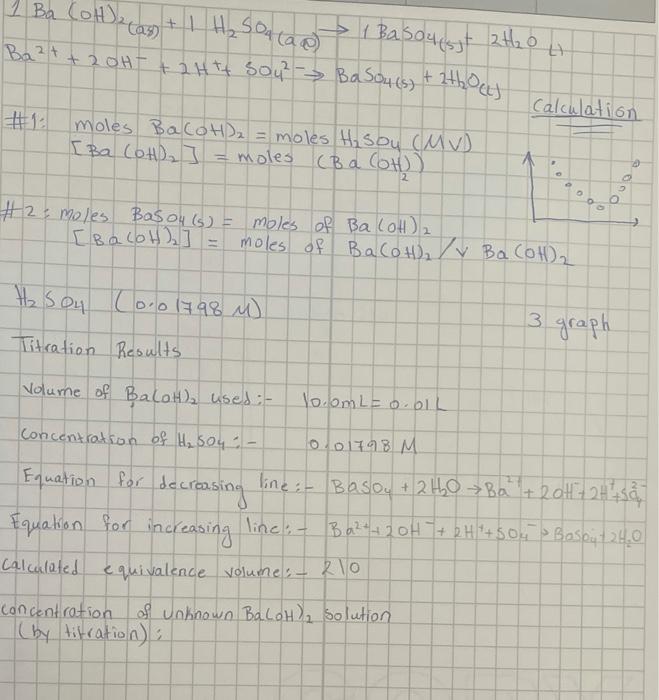 1 Ba(OH)₂(aq) + 1 H₂SO₄(aq) → 1 BaSO₄(s) + 2H₂O (l)
Ba²⁺ + 2OH⁻ + 2H⁺ + SO₄²⁻ → BaSO₄(s) + 2H₂O(l)
Calculation
#1: moles Ba(OH)₂ = moles H₂SO₄ (MV)
[Ba(OH)₂] = moles (Ba(OH)₂)
#2: moles BaSO₄(s) = moles of Ba(OH)₂
[Ba(OH)₂] = moles of Ba(OH)₂/V Ba(OH)₂
H₂SO₄ (0.01798 M)
3 graph
Titration Results
Volume of Ba(OH)₂ used:- 10.0mL = 0.01L
Concentration of H₂SO₄:- 0.01798 M
Equation for decreasing line:- BaSO₄ + 2H₂O → Ba²⁺ + 2OH⁻ + 2H⁺ + SO₄²⁻
Equation for increasing line:- Ba²⁺ + 2OH⁻ + 2H⁺ + SO₄⁻ → BaSO₄ + 2H₂O
Calculated equivalence volume:- 210
Concentration of unknown Ba(OH)₂ solution
(by titration):